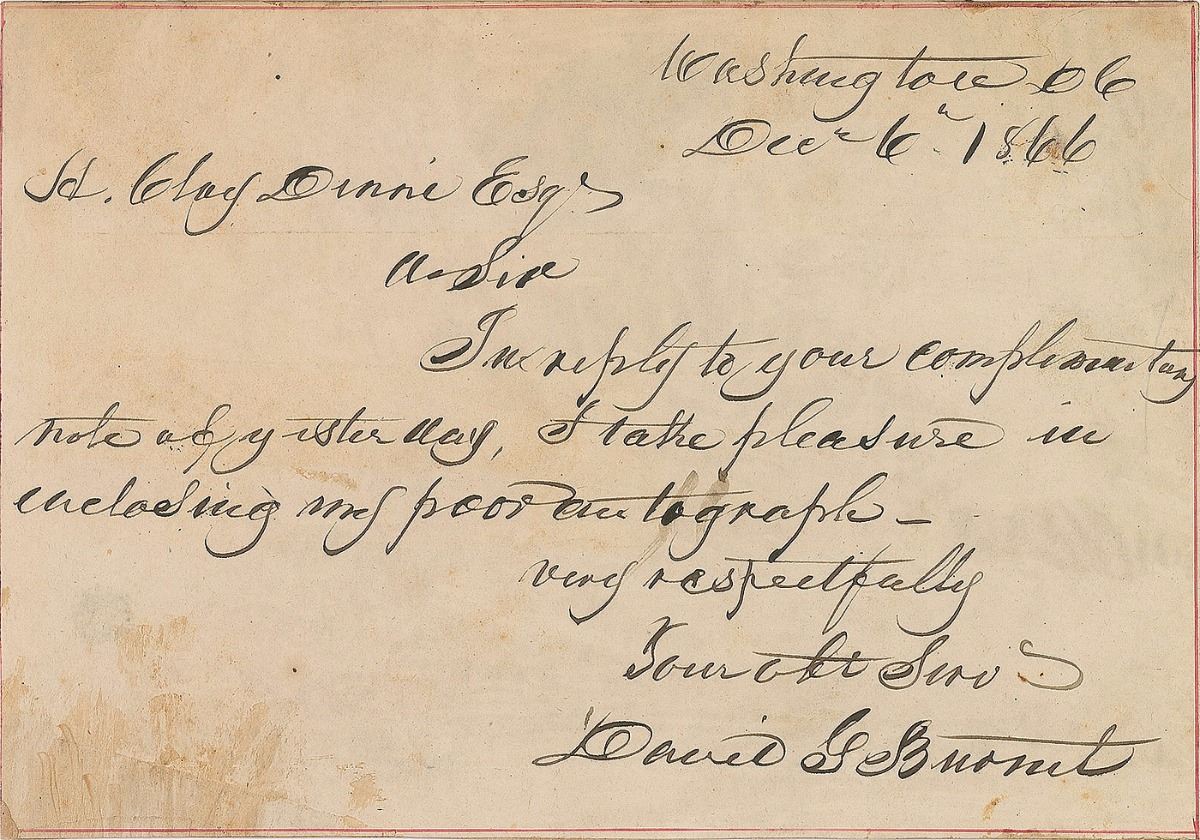 Washington DC
Decr 6th 1866
H. Clay Dinne Esqr
D Sir
In reply to your complimentary
note of yesterday, I take pleasure in
inclosing my poor autograph –
very respectfully
Your obt Serv
David G Burnet